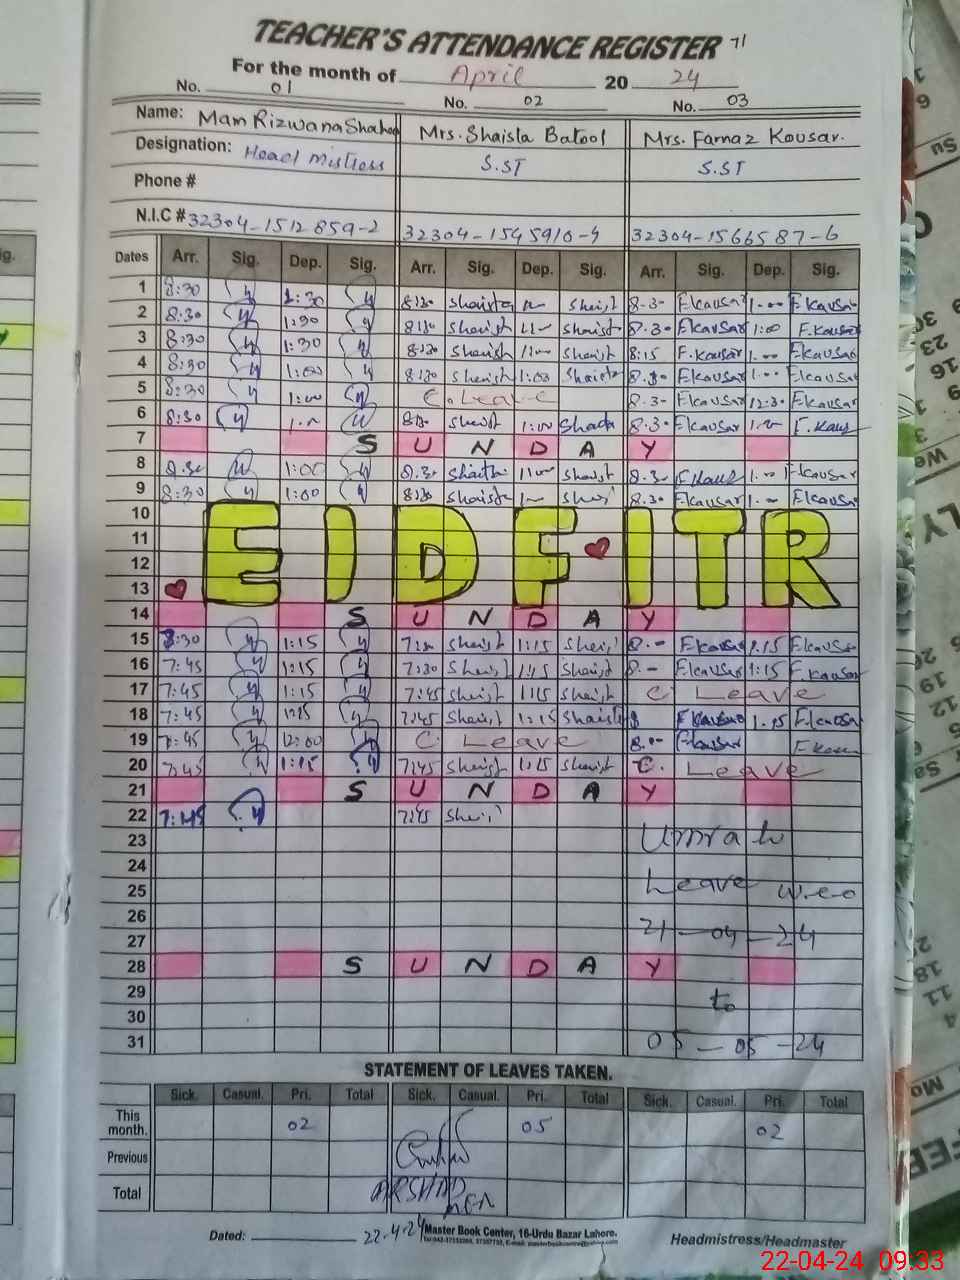 TEACHER'S ATTENDANCE REGISTER 71
For the month of April 20 24
No. 01 No. 02 No. 03
Name: Mam Rizwana Shaheen Mrs. Shaista Batool Mrs. Farnaz Kousar.
Designation: Head mistress S.ST S.ST
Phone #
N.I.C # 32304-1512859-2 32304-1545910-4 32304-1566587-6
Dates Arr. Sig. Dep. Sig. Arr. Sig. Dep. Sig. Arr. Sig. Dep. Sig.
1 8:30 1:30 8:30 Shaista 8-30 F.kausar 1-00 F.kausar
2 8:30 1:30 8:30 Shaist Shaist 8.30 F.kausar 1:00 F.kausar
3 8:30 1:30 8:30 Shaist Shaist 8:15 F.kausar 1-00 F.kausar
4 8:30 1:00 8:30 Shaist 1:00 Shaist 8.30 F.kausar 1.00 F.kausar
5 8:30 1:00 C. Leave 8.30 F.kausar 12:30 F.kausar
6 8:30 1:00 8:30 Shaist 1:00 8.30 F.kausar F.kaus
7 S U N D A Y
8 8:30 1:00 8:30 Shaista Shaist 8.30 F.kaus 1.00 F.kausar
9 8:30 1:00 8:30 Shaist 8.30 F.kausar F.kausar
10
11 EID FITR
12
13
14 S U N D A Y
15 8:30 1:15 Shaist 1:15 Shaist 8.- F.kausar 1.15 F.kausar
16 7:45 1:15 7:30 Shaist 1:15 Shaist 8.- F.kausar 1:15 F.kausar
17 7:45 1:15 7:45 Shaist 1:15 Shaist C. Leave
18 7:45 1:15 7:45 Shaist 1:15 Shaist 8 F.kausar 1.15 F.kausar
19 7:45 12:00 C. Leave 8.0- F.kausar
20 7:45 1:15 7:45 Shaist 1:15 Shaist C. Leave
21 S U N D A Y
22 7:45 7:45 Shaist
23 Umrah
24
25 Leave w.e.o
26
27 21-04-24
28 S U N D A Y
29 to
30
31 05-05-24
STATEMENT OF LEAVES TAKEN.
Sick. Casual. Pri. Total Sick. Casual. Pri. Total Sick. Casual. Pri. Total
This month. 02 05 02
Previous
Total ARSHAD
Dated: 22-4-24 Master Book Center, 16-Urdu Bazar Lahore.
Headmistress/Headmaster
22-04-24 09:33